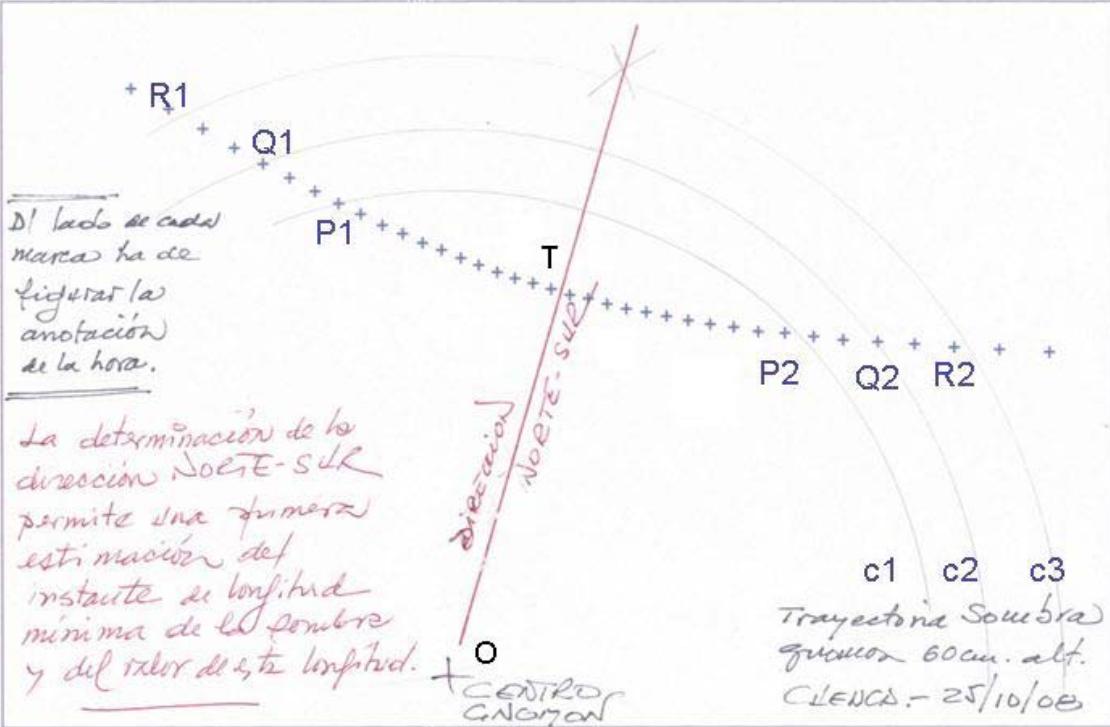 R1
Q1
P1
T
P2
Q2
R2
Al lado de cada
marca ha de
figurar la
anotación
de la hora.
DIRECCION
NORTE-SUR
La determinación de la
dirección NORTE-SUR
permite una primera
estimación del
instante de longitud
mínima de la sombra
y del valor de esta longitud.
O
CENTRO
GNOMON
c1 c2 c3
Trayectoria Sombra
gnomon 60cm. alt.
CUENCA.- 25/10/08